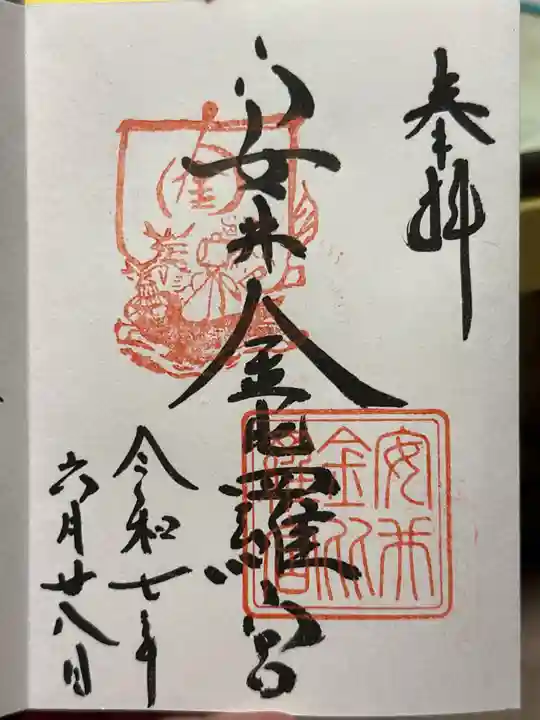 奉拝
安井金毘羅宮
安井
金比
羅宮
金
令和七年
六月廿八日